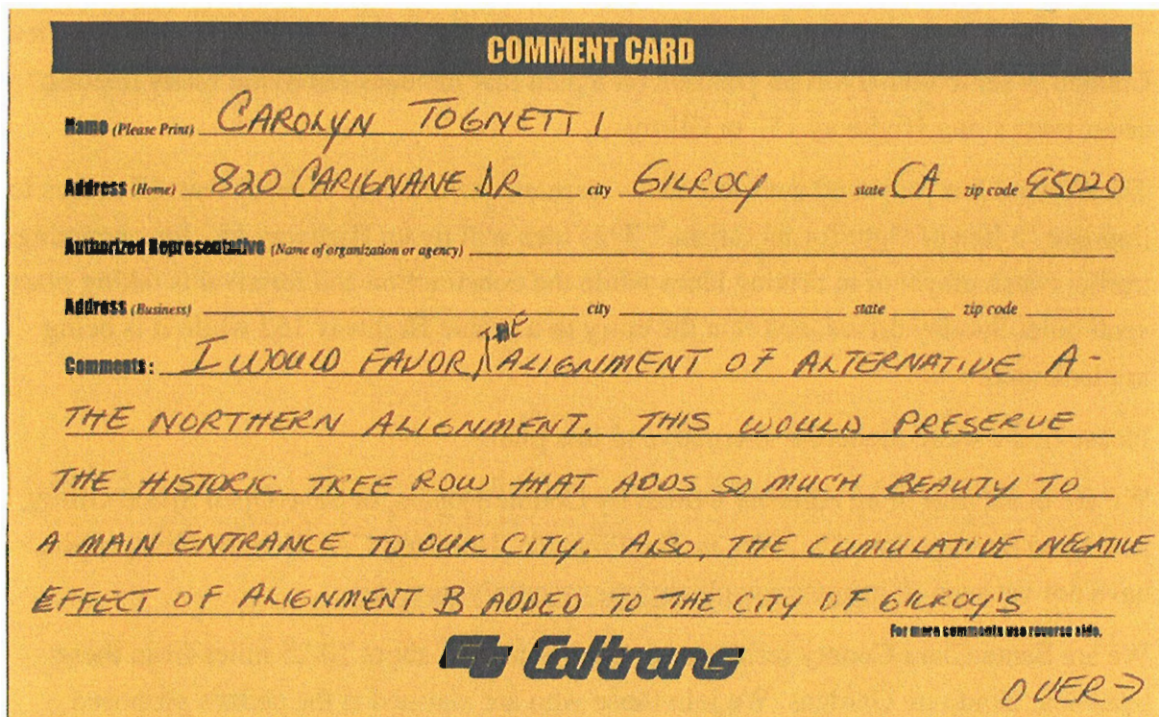 COMMENT CARD
Name (Please Print) CAROLYN TOGNETTI
Address (Home) 820 CARIGNANE DR city GILROY state CA zip code 95020
Authorized Representative (Name of organization or agency)
Address (Business) city state zip code
Comments: I WOULD FAVOR THE ALIGNMENT OF ALTERNATIVE A-
THE NORTHERN ALIGNMENT. THIS WOULD PRESERVE
THE HISTORIC TREE ROW THAT ADDS SO MUCH BEAUTY TO
A MAIN ENTRANCE TO OUR CITY. ALSO, THE CUMULATIVE NEGATIVE
EFFECT OF ALIGNMENT B ADDED TO THE CITY OF GILROY'S
For more comments use reverse side.
Caltrans
OVER →